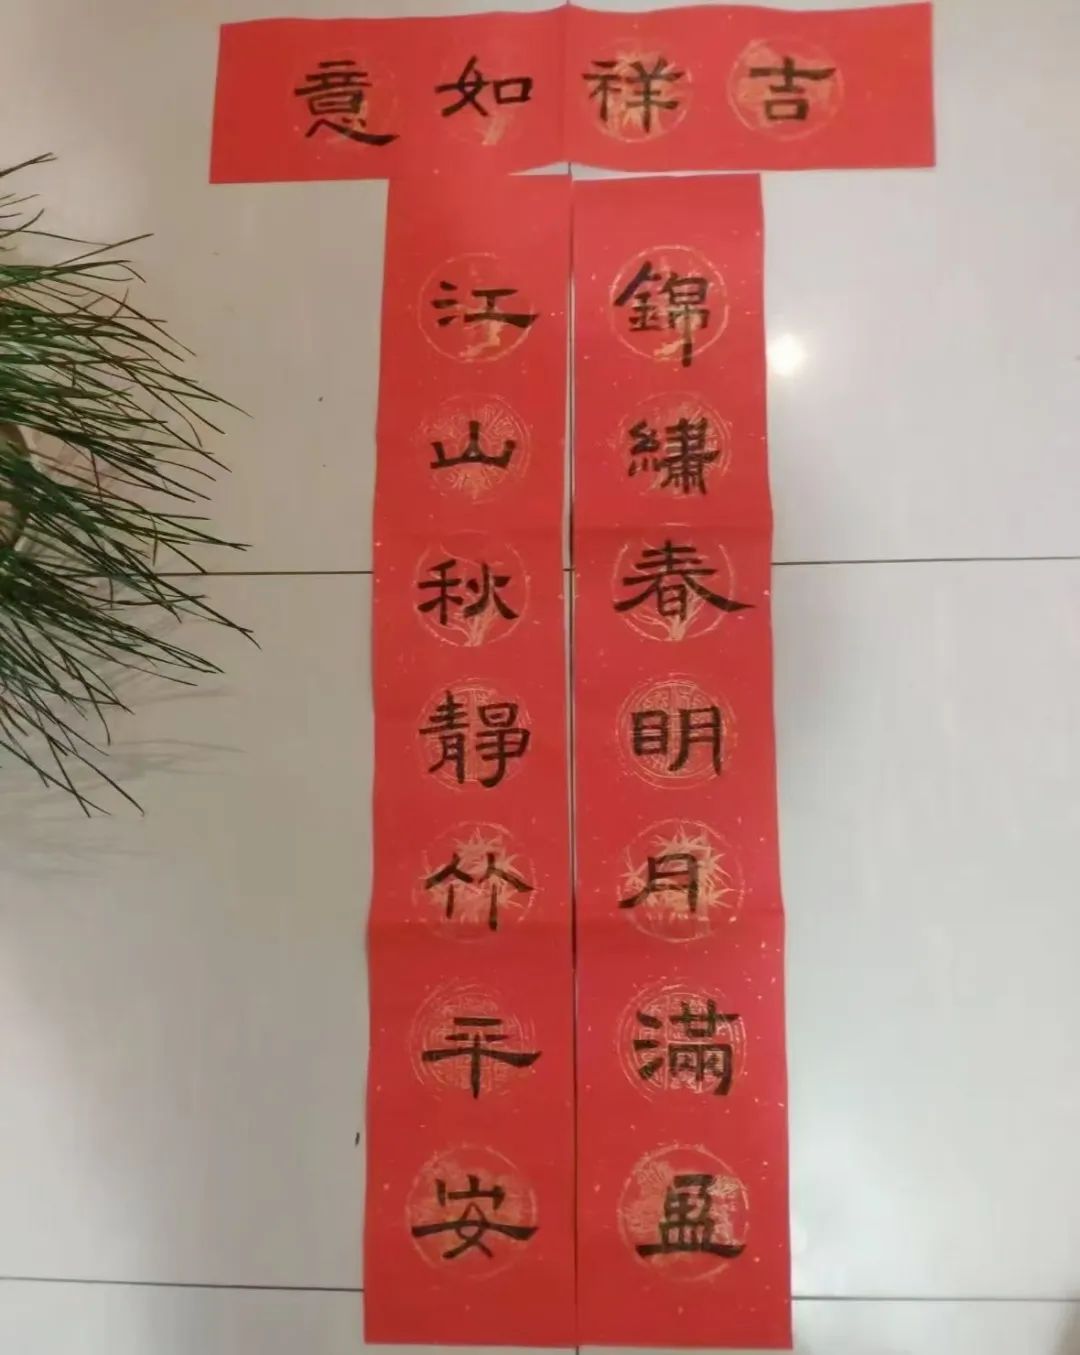 吉祥如意
錦繡春明月滿盈
江山秋靜竹平安